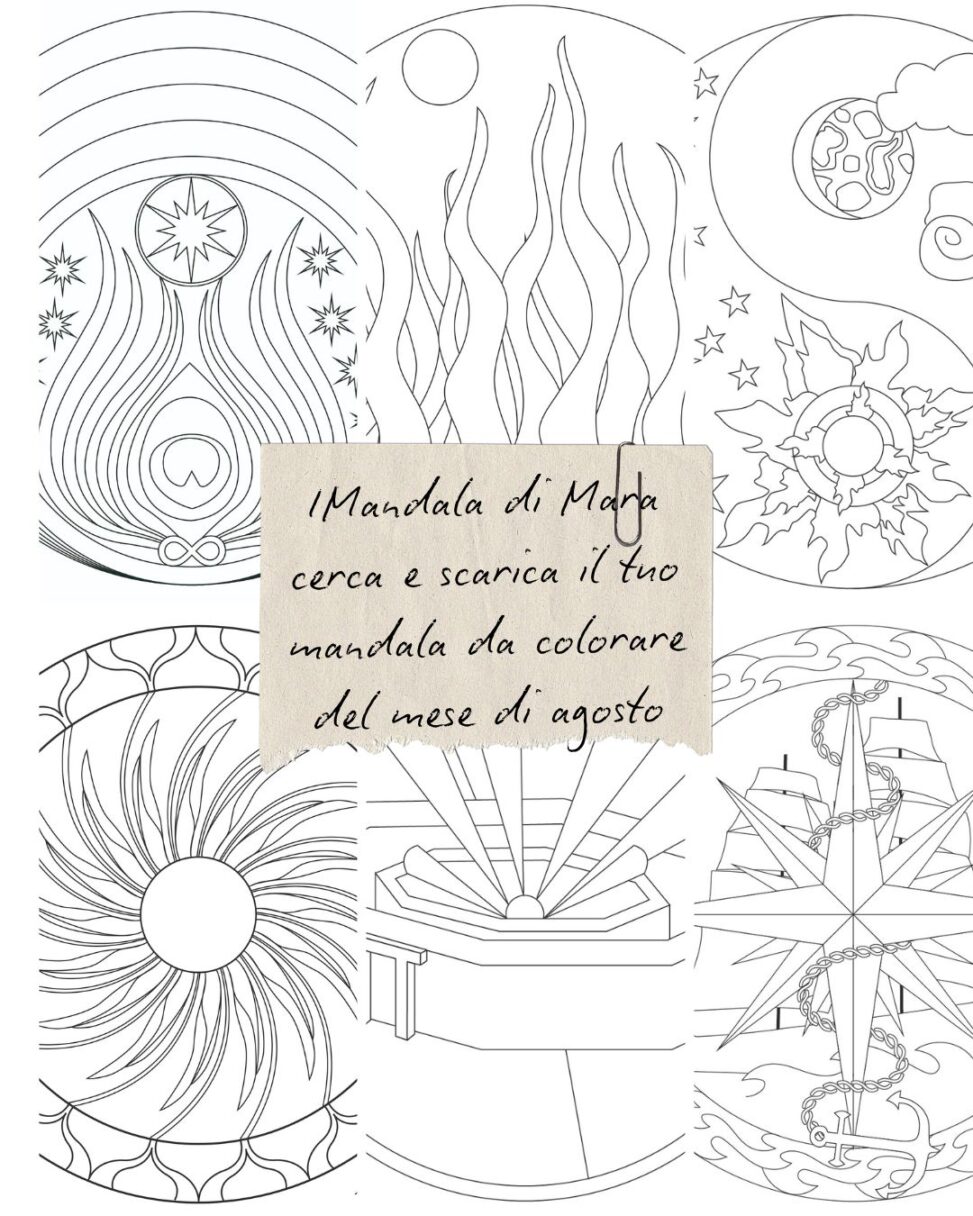 IMandala di Mara
cerca e scarica il tuo
mandala da colorare
del mese di agosto